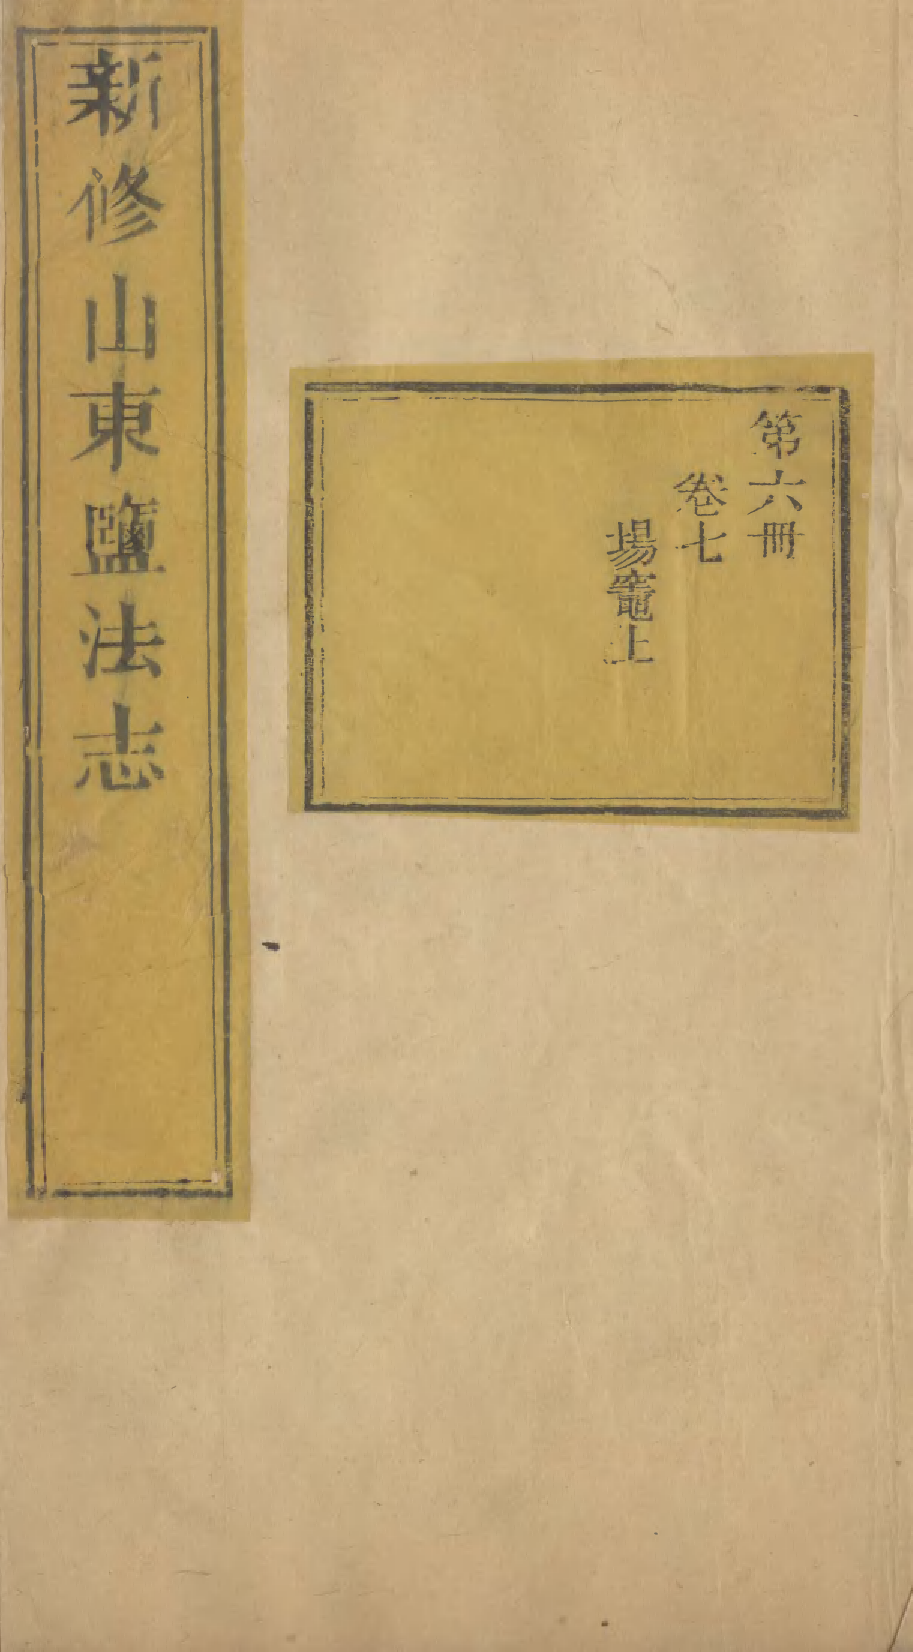 第六冊
卷七
場竈上
新修山東鹽法志